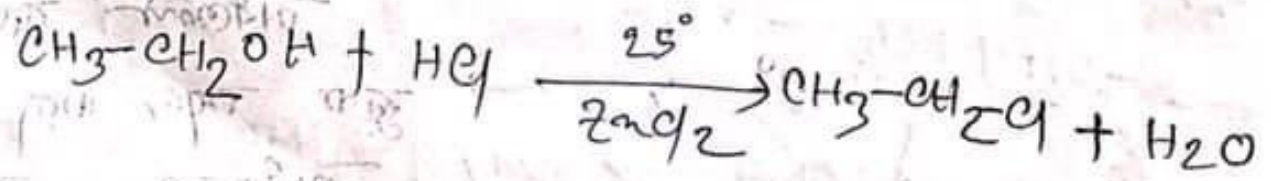 CH₃-CH₂OH + HCl 25° ZnCl₂ → CH₃-CH₂Cl + H₂O